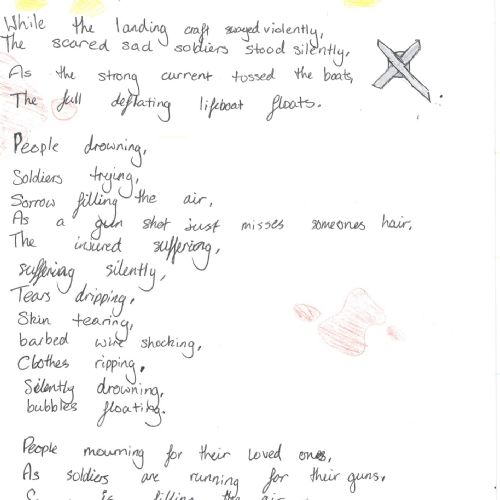 While the landing craft swayed violently,
The scared sad soldiers stood silently,
As the strong current tossed the boats,
The full deflating lifeboat floats.
People drowning,
Soldiers trying,
Sorrow filling the air,
As a gun shot just misses someones hair,
The injured suffering,
suffering silently,
Tears dripping,
Skin tearing,
barbed wire shocking,
Clothes ripping,
Silently drowning,
bubbles floating.
People mourning for their loved ones,
As soldiers are running for their guns,
is filling the air